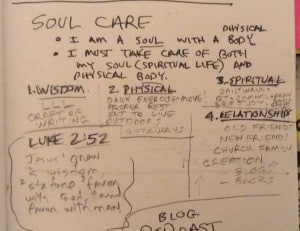 SOUL CARE
• I AM A SOUL WITH A PHYSICAL BODY.
• I MUST TAKE CARE OF BOTH
MY SOUL (SPIRITUAL LIFE) AND
PHYSICAL BODY.
1. WISDOM
CRAFT OF
WRITING
2. PHYSICAL
DAILY EXERCISE/MOVE
PROPER REST
EAT TO LIVE
OUTDOORS
GETAWAYS
3. SPIRITUAL
DAILY WALK
4. RELATIONSHIPS
OLD FRIENDS
NEW FRIENDS
CHURCH FAMILY
CREATION
- BLOGS
- BOOKS
LUKE 2:52
Jesus grew
in wisdom,
favor
with God, and
favor with man.
BLOG
PODCAST